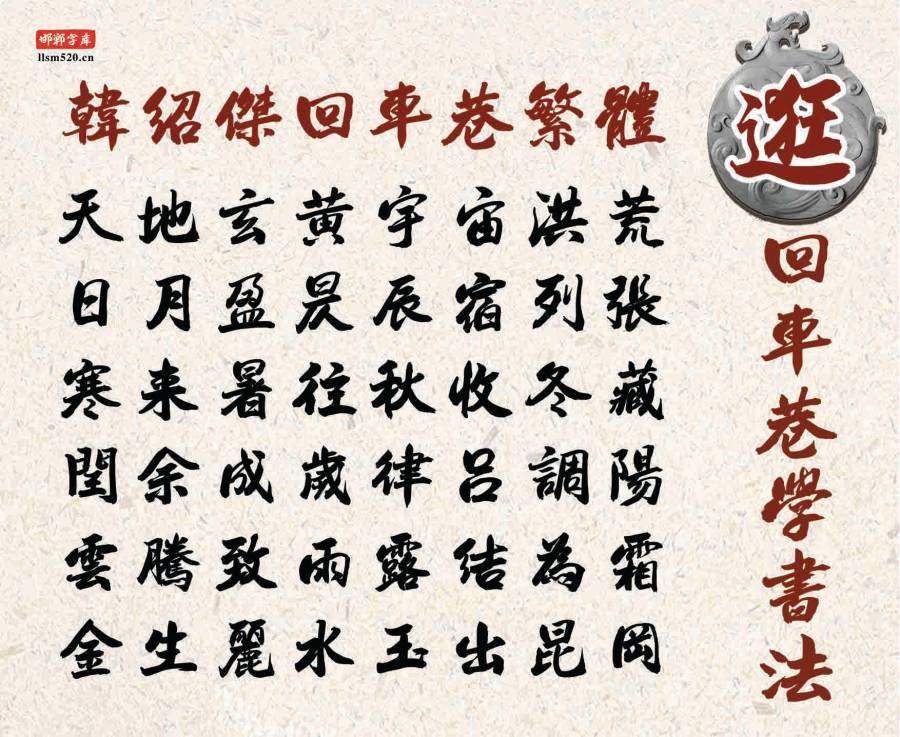 邯郸字库
llsm520.cn
韓紹傑回車巷繁體
天地玄黃宇宙洪荒
日月盈昃辰宿列張
寒来暑往秋收冬藏
閏余成歲律呂調陽
雲騰致雨露結為霜
金生麗水玉出昆岡
逛回車巷學書法